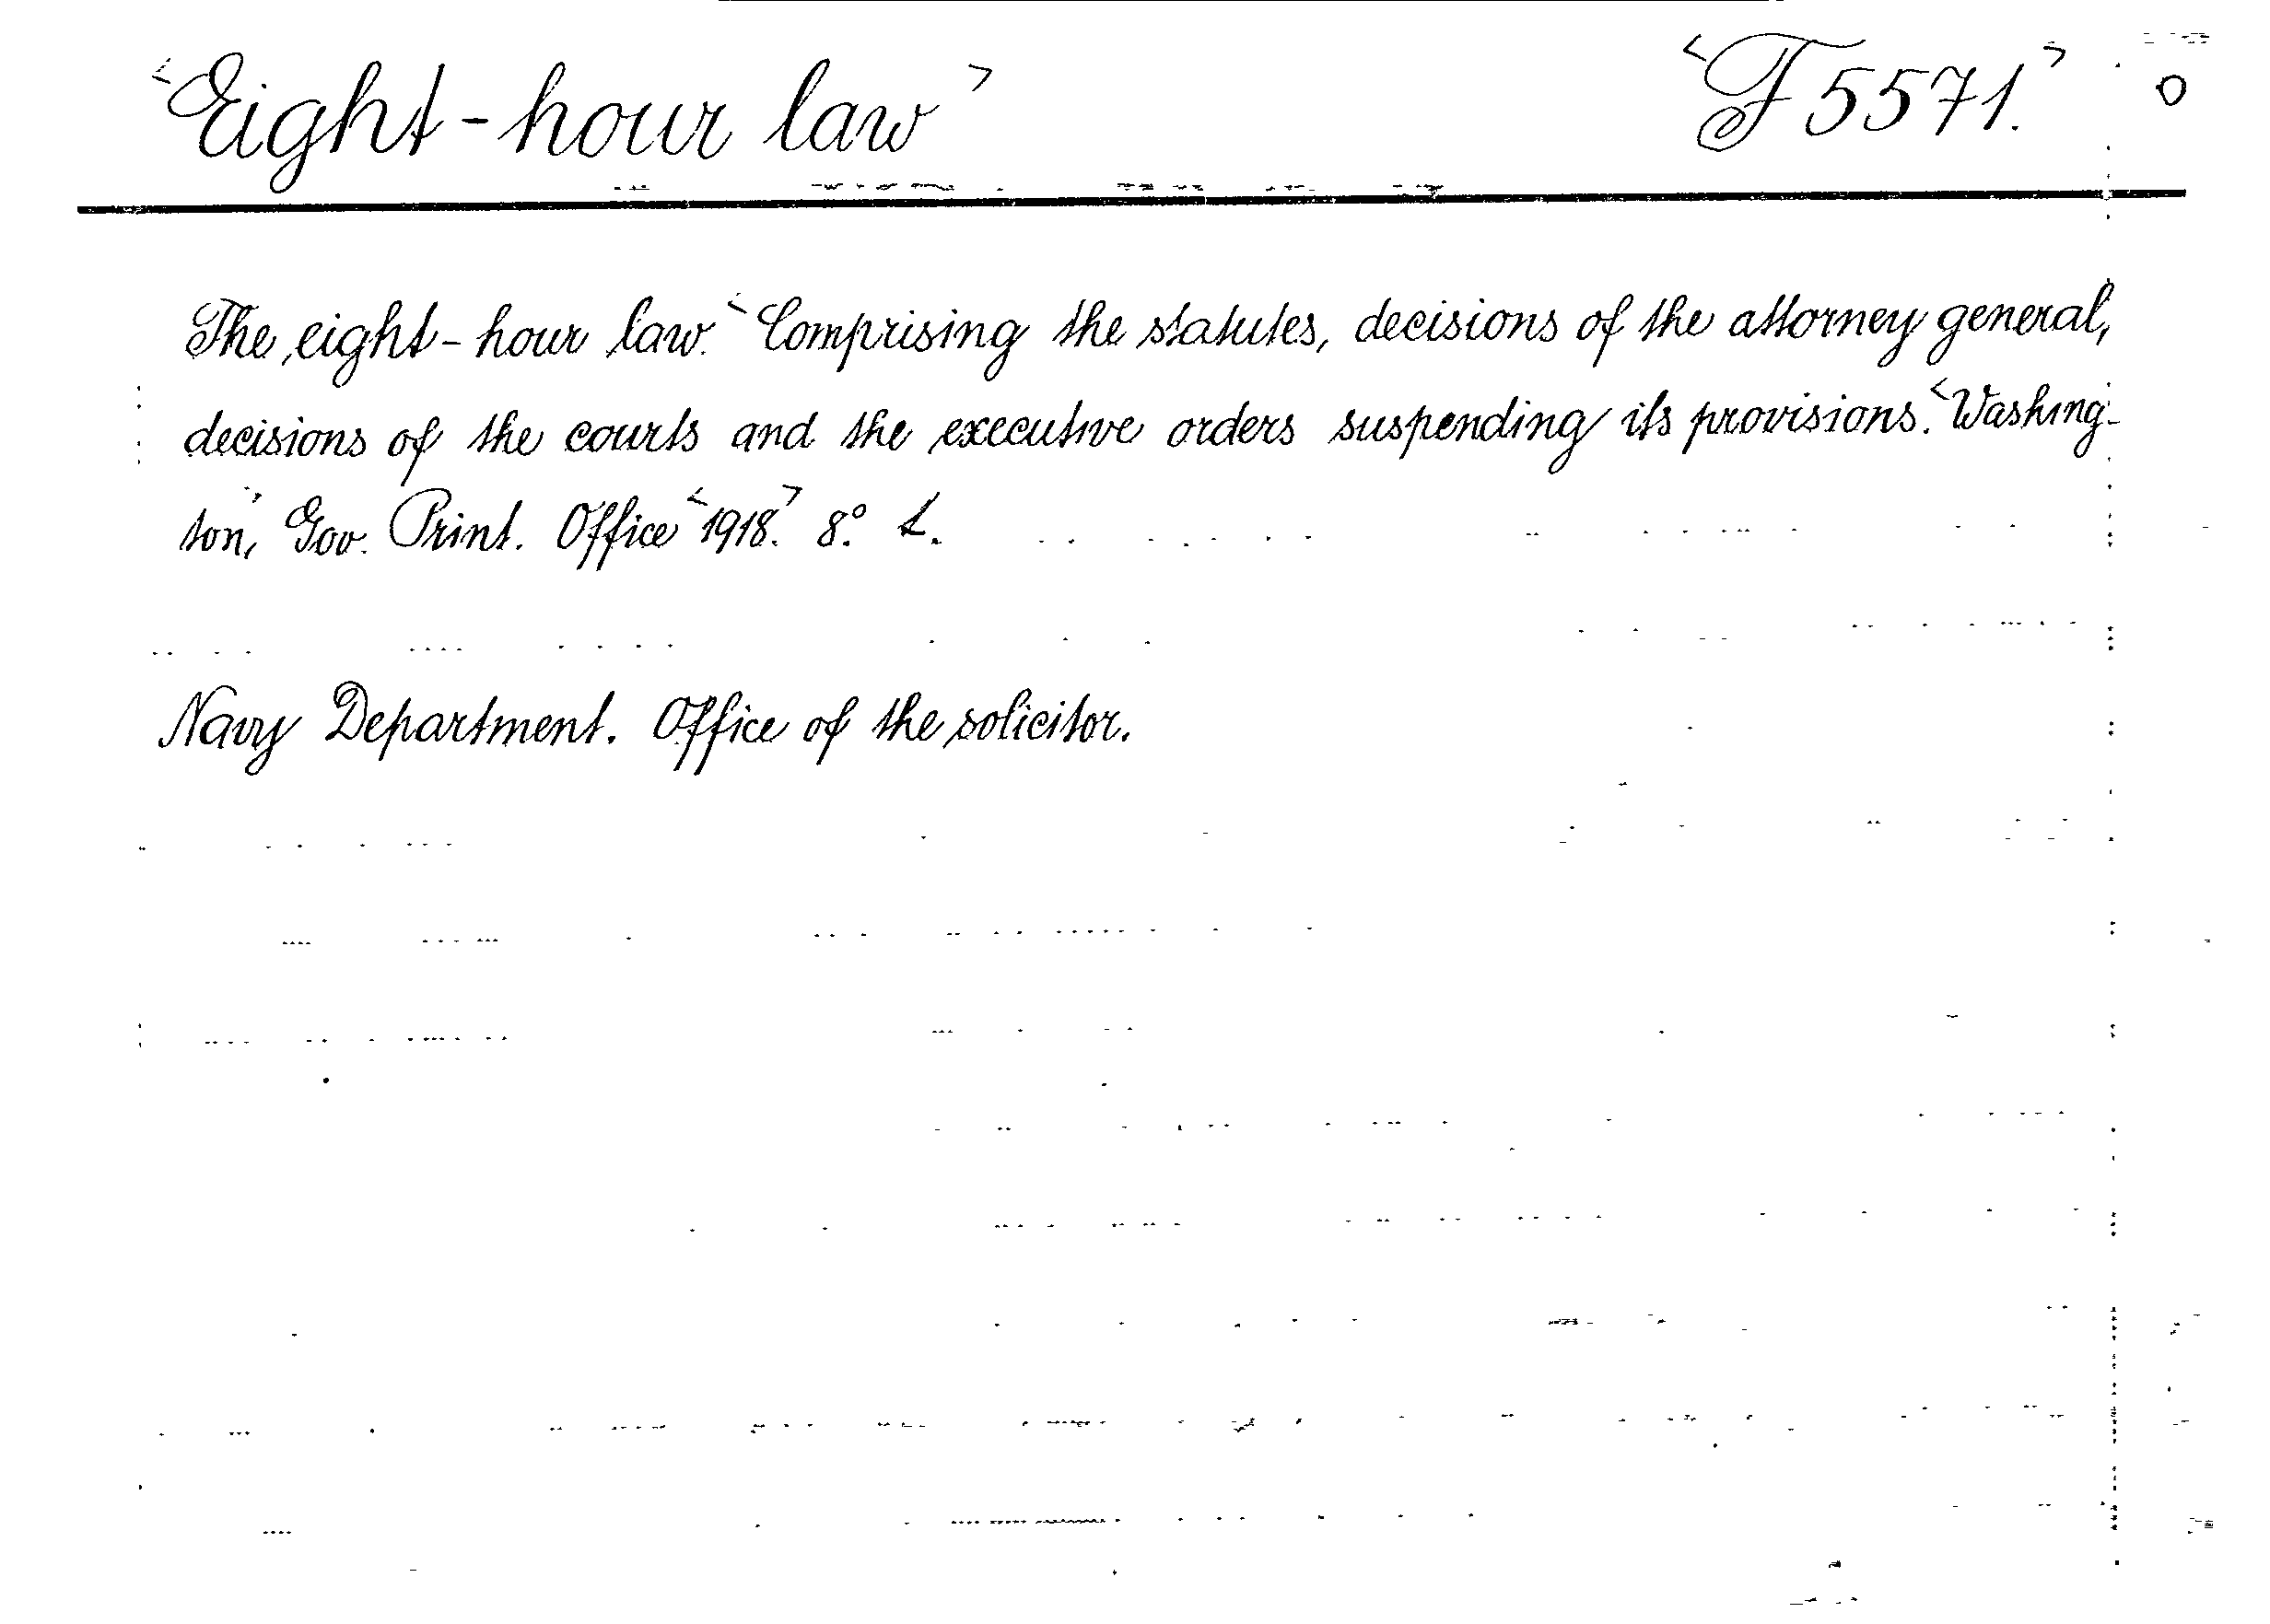 Eight-hour law F 5571. 0
The eight-hour law. Comprising the statutes, decisions of the attorney general,
decisions of the courts and the executive orders suspending its provisions. Washing-
ton, Gov. Print. Office 1918. 8°.
Navy Department. Office of the solicitor.